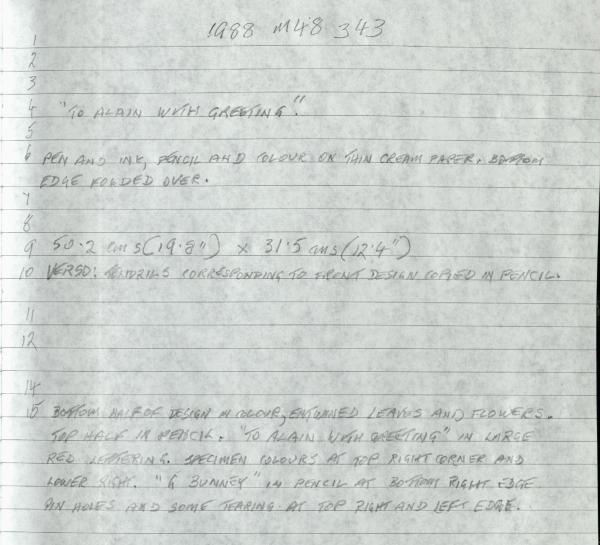 1988 M48 343
1
2
3
4 "TO ALAIN WITH GREETING".
5
6 PEN AND INK, PENCIL AND COLOUR ON THIN CREAM PAPER. BOTTOM
EDGE FOLDED OVER.
7
8
9 50.2 cms (19.8") x 31.5 cms (12.4")
10 VERSO: TENDRILS CORRESPONDING TO FRONT DESIGN COPIED IN PENCIL.
11
12
14
15 BOTTOM HALF OF DESIGN IN COLOUR, ENTWINED LEAVES AND FLOWERS.
TOP HALF IN PENCIL. "TO ALAIN WITH GREETING" IN LARGE
RED LETTERING. SPECIMEN COLOURS AT TOP RIGHT CORNER AND
LOWER RIGHT. "G BUNNEY" IN PENCIL AT BOTTOM RIGHT EDGE
PIN HOLES AND SOME TEARING AT TOP RIGHT AND LEFT EDGE.